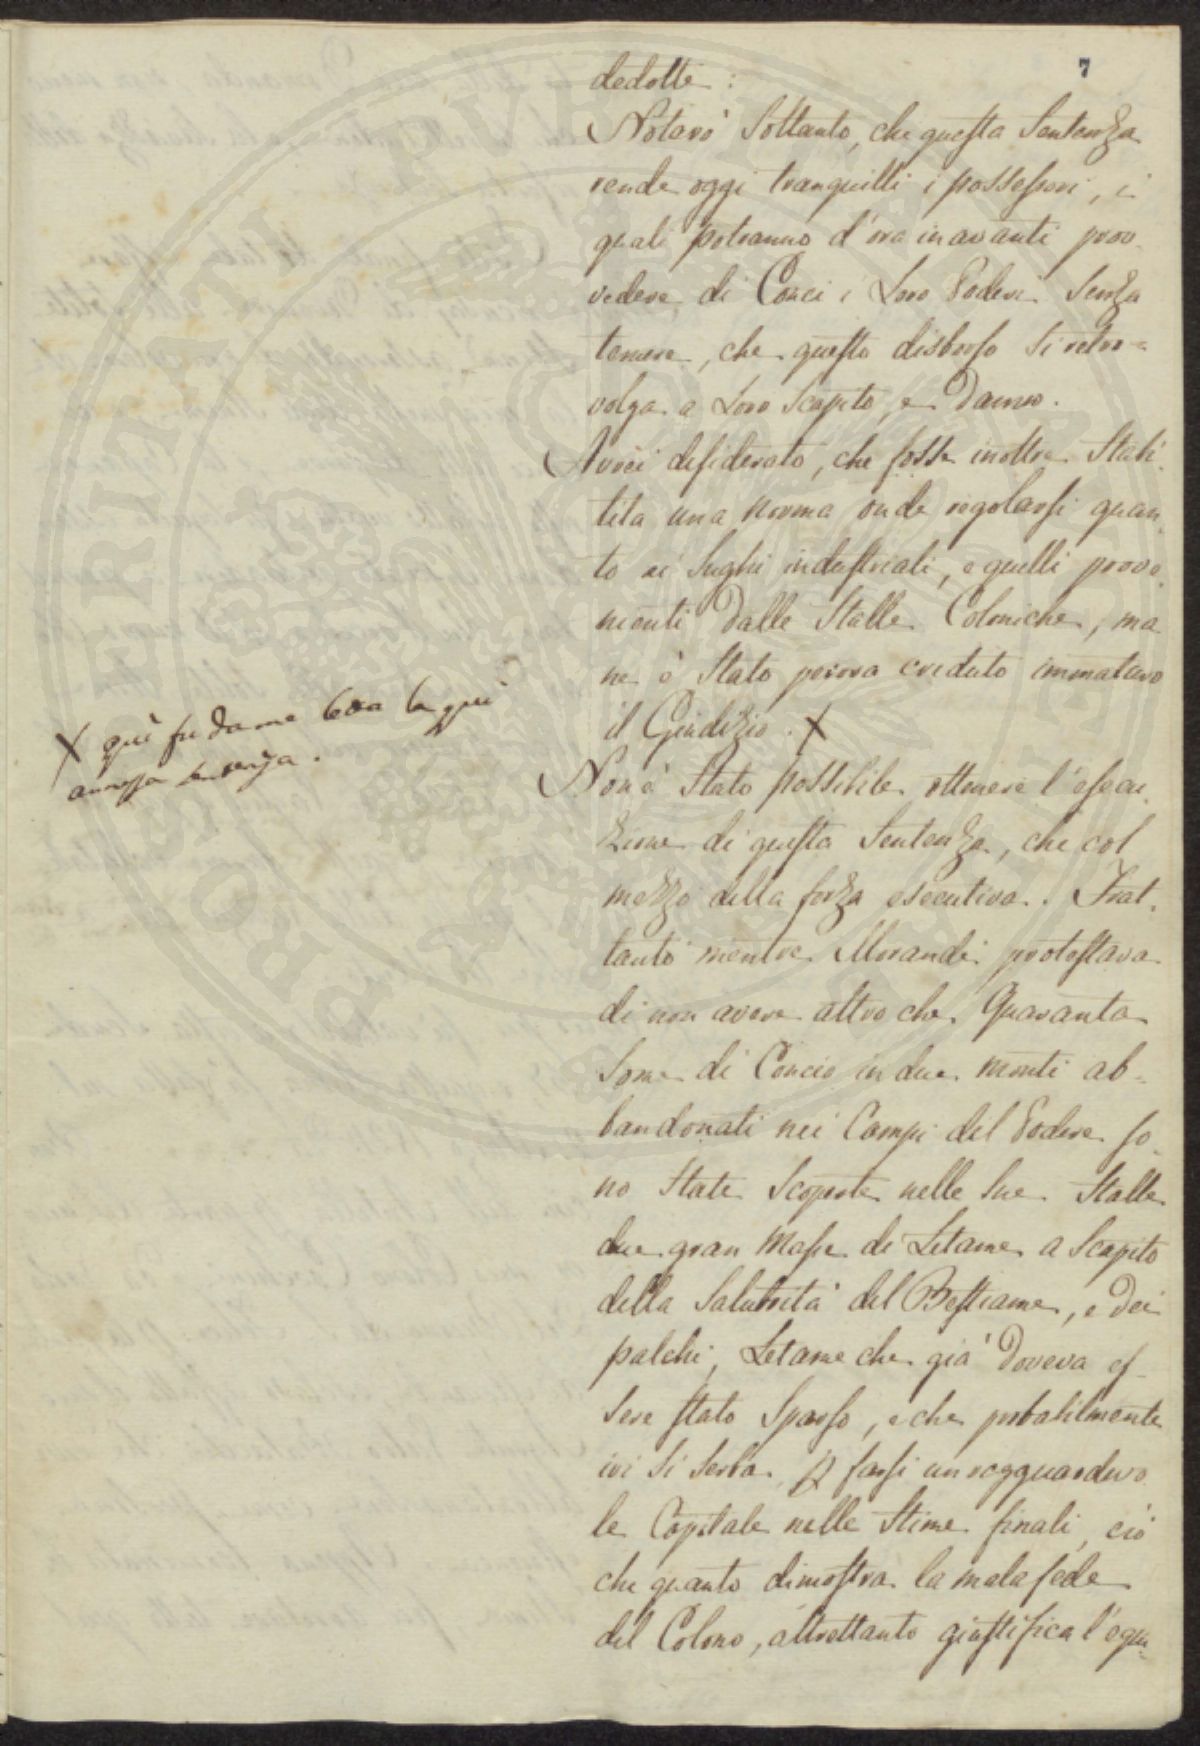 7
dedotti :
Noterò Soltanto, che questa Sentenza
rende oggi tranquilli i possessori, i
quali potranno d'ora in avanti prov-
vedere di Conci i Loro Poderi Senza
temere, che questo disborso Si rivol=
volga a Loro Scapito, e Danno.
Avrei desiderato, che fosse inoltre Stabi-
lita una norma onde regolarsi quan-
to ai Sughi industriali, e quelli prove-
nienti dalle Stalle Coloniche, ma
ne è Stato perora creduto immaturo
il Giudizio. X
X qui fu da me letta la qui
annessa sentenza.
Non è Stato possibile ottenere l'esecu-
zione di questa Sentenza, che col
mezzo della forza esecutiva. Frat-
tanto mentre Morandi protestava
di non avere altro che Quaranta
Some di Concio in due monti ab-
bandonati nei Campi del Podere so-
no State Scoperte nelle Sue Stalle
due gran Masse di Letame a Scapito
della Salubrità del Bestiame, e dei
palchi, Letame che già doveva es-
sere stato Sparso, e che probabilmente
ivi Si Serba p farsi un ragguardevo
le Capitale nelle Stime finali, ciò
che quanto dimostra la mala fede
del Colono, altrettanto giustifica l'equi-
PROSPERITATI PUBLICAE